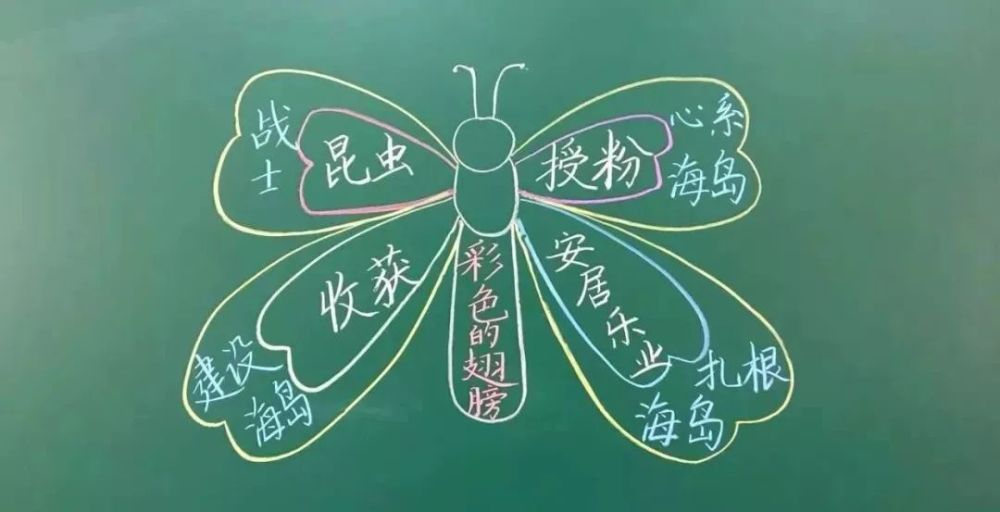 战
士
昆虫
授粉
心系
海岛
收获
彩色的翅膀
安居乐业
建设
海岛
扎根
海岛